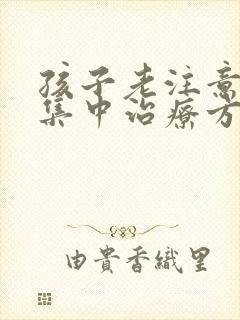 孩子老注意
集中治療方
由貴香織里